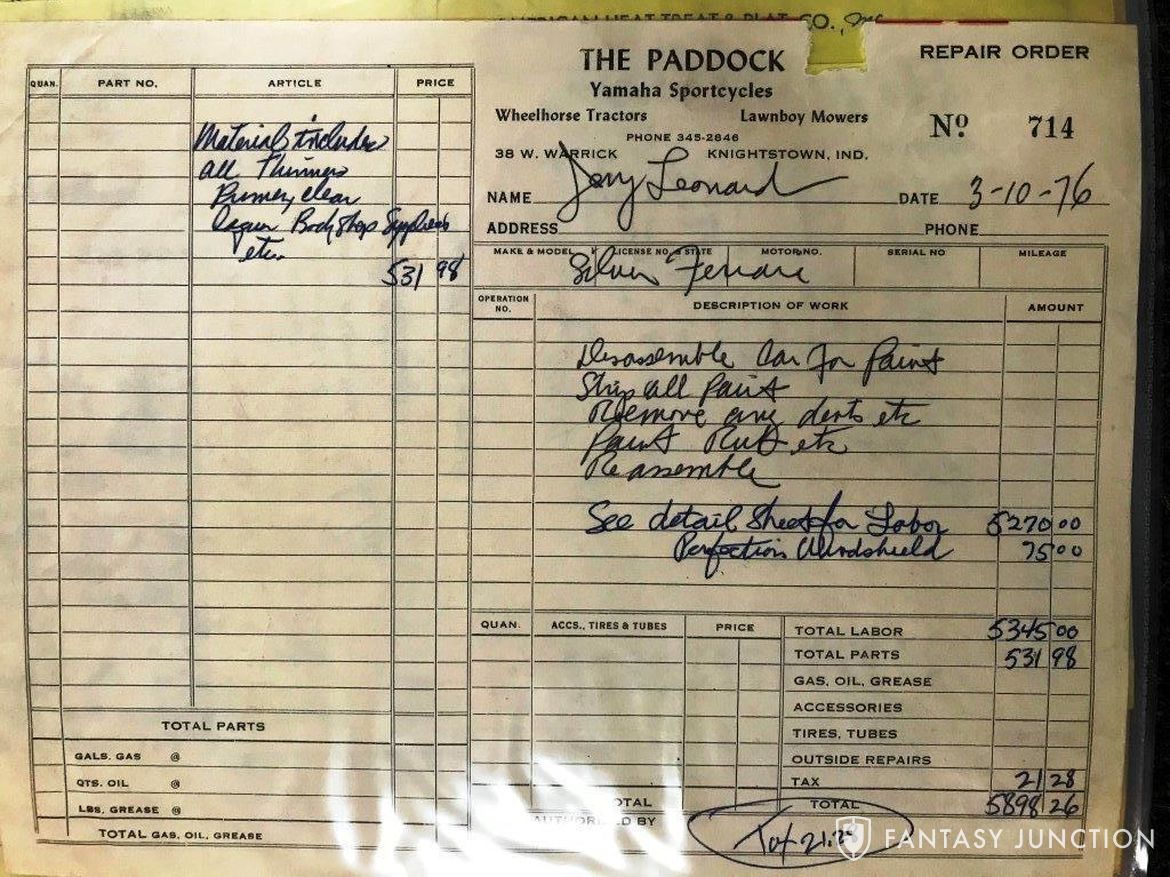 AMERICAN HEAT TREAT & PLAT. CO., Inc
THE PADDOCK
REPAIR ORDER
Yamaha Sportcycles
Wheelhorse Tractors Lawnboy Mowers
Nº 714
PHONE 345-2846
38 W. WARRICK KNIGHTSTOWN, IND.
NAME Jerry Leonard DATE 3-10-76
ADDRESS PHONE
MAKE & MODEL LICENSE NO. & STATE MOTOR NO. SERIAL NO MILEAGE
Silver Ferrari
QUAN. PART NO. ARTICLE PRICE
Material includes
all Thinners
Primer, clear
Laquer Body Shop Supplies
etc.
531 98
TOTAL PARTS
GALS. GAS @
QTS. OIL @
LBS. GREASE @
TOTAL GAS, OIL, GREASE
OPERATION NO. DESCRIPTION OF WORK AMOUNT
Disassemble Car For Paint
Strip all Paint
Remove any dents etc
Paint Rub etc
Reassemble
See detail Sheet for Labor 5270 00
Perfection Windshield 75 00
QUAN. ACCS., TIRES & TUBES PRICE
TOTAL LABOR 5345 00
TOTAL PARTS 531 98
GAS, OIL, GREASE
ACCESSORIES
TIRES, TUBES
OUTSIDE REPAIRS
TAX 21 28
TOTAL 5898 26
TOTAL
AUTHORIZED BY
Tax 21.28
FANTASY JUNCTION